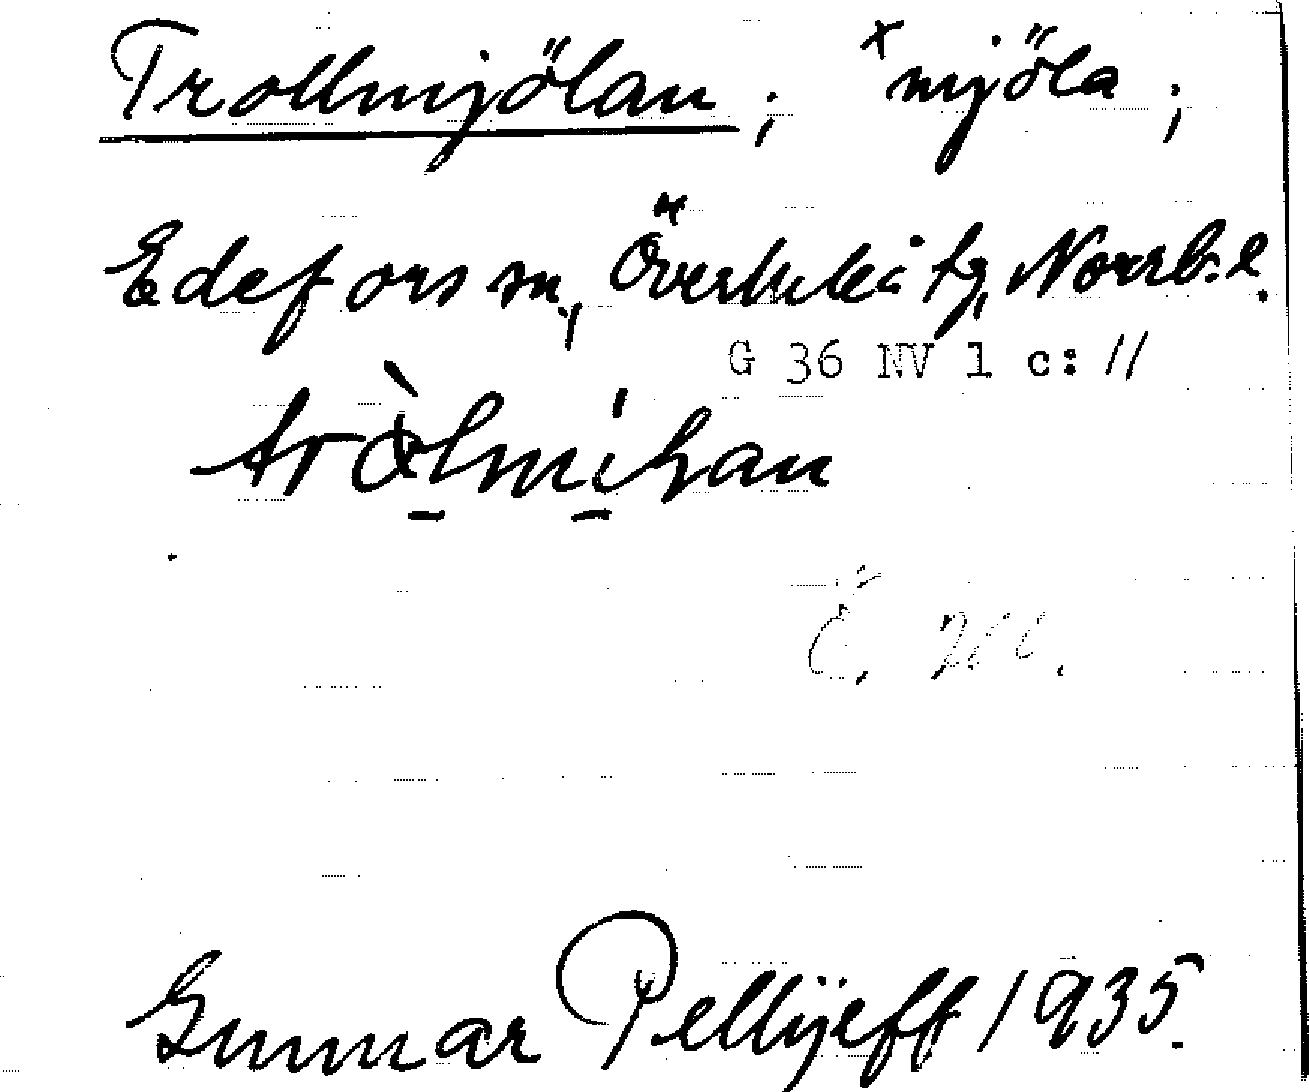 Trollmjölan; ˣmjöla;
Edefors sn, Överluleå tg, Norrb. l.
G 36 NV 1 c: 11
Gunnar Pellijeff 1935.